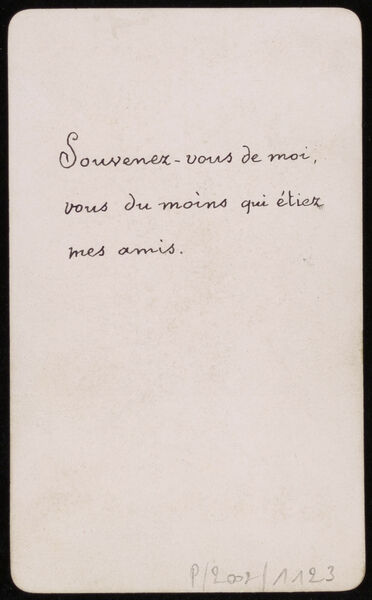 Souvenez-vous de moi,
vous du moins qui étiez
mes amis.
P/2002/1123